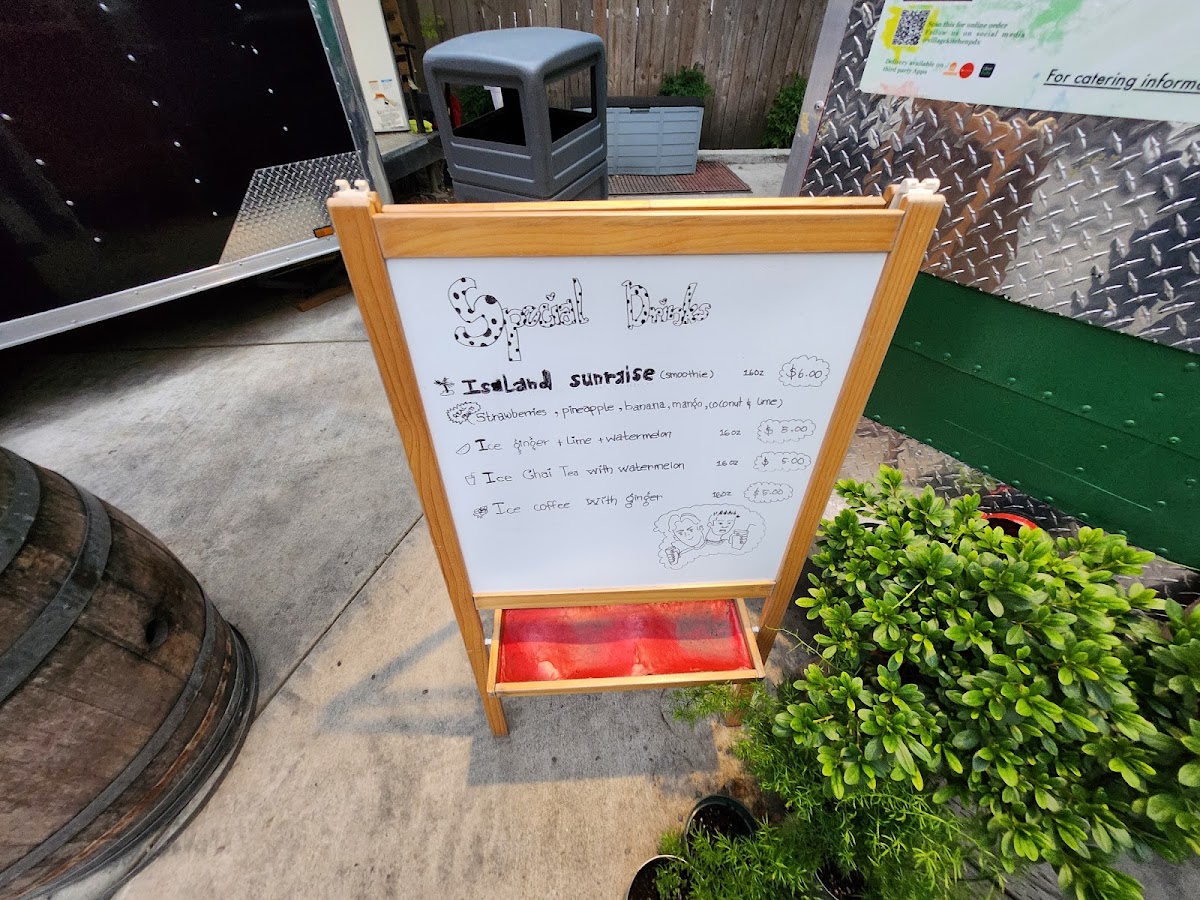 Scan this for online order
Follow us on social media
Delivery available on
third party Apps
For catering
Special Drinks
Iseland sunraise (smoothie) 16oz $6.00
Strawberries , pineapple , banana, mango, coconut & lime)
Ice ginger + lime + watermelon 16oz $ 5.00
Ice Chai Tea with watermelon 16oz $ 5.00
Ice coffee with ginger 16oz $5.00